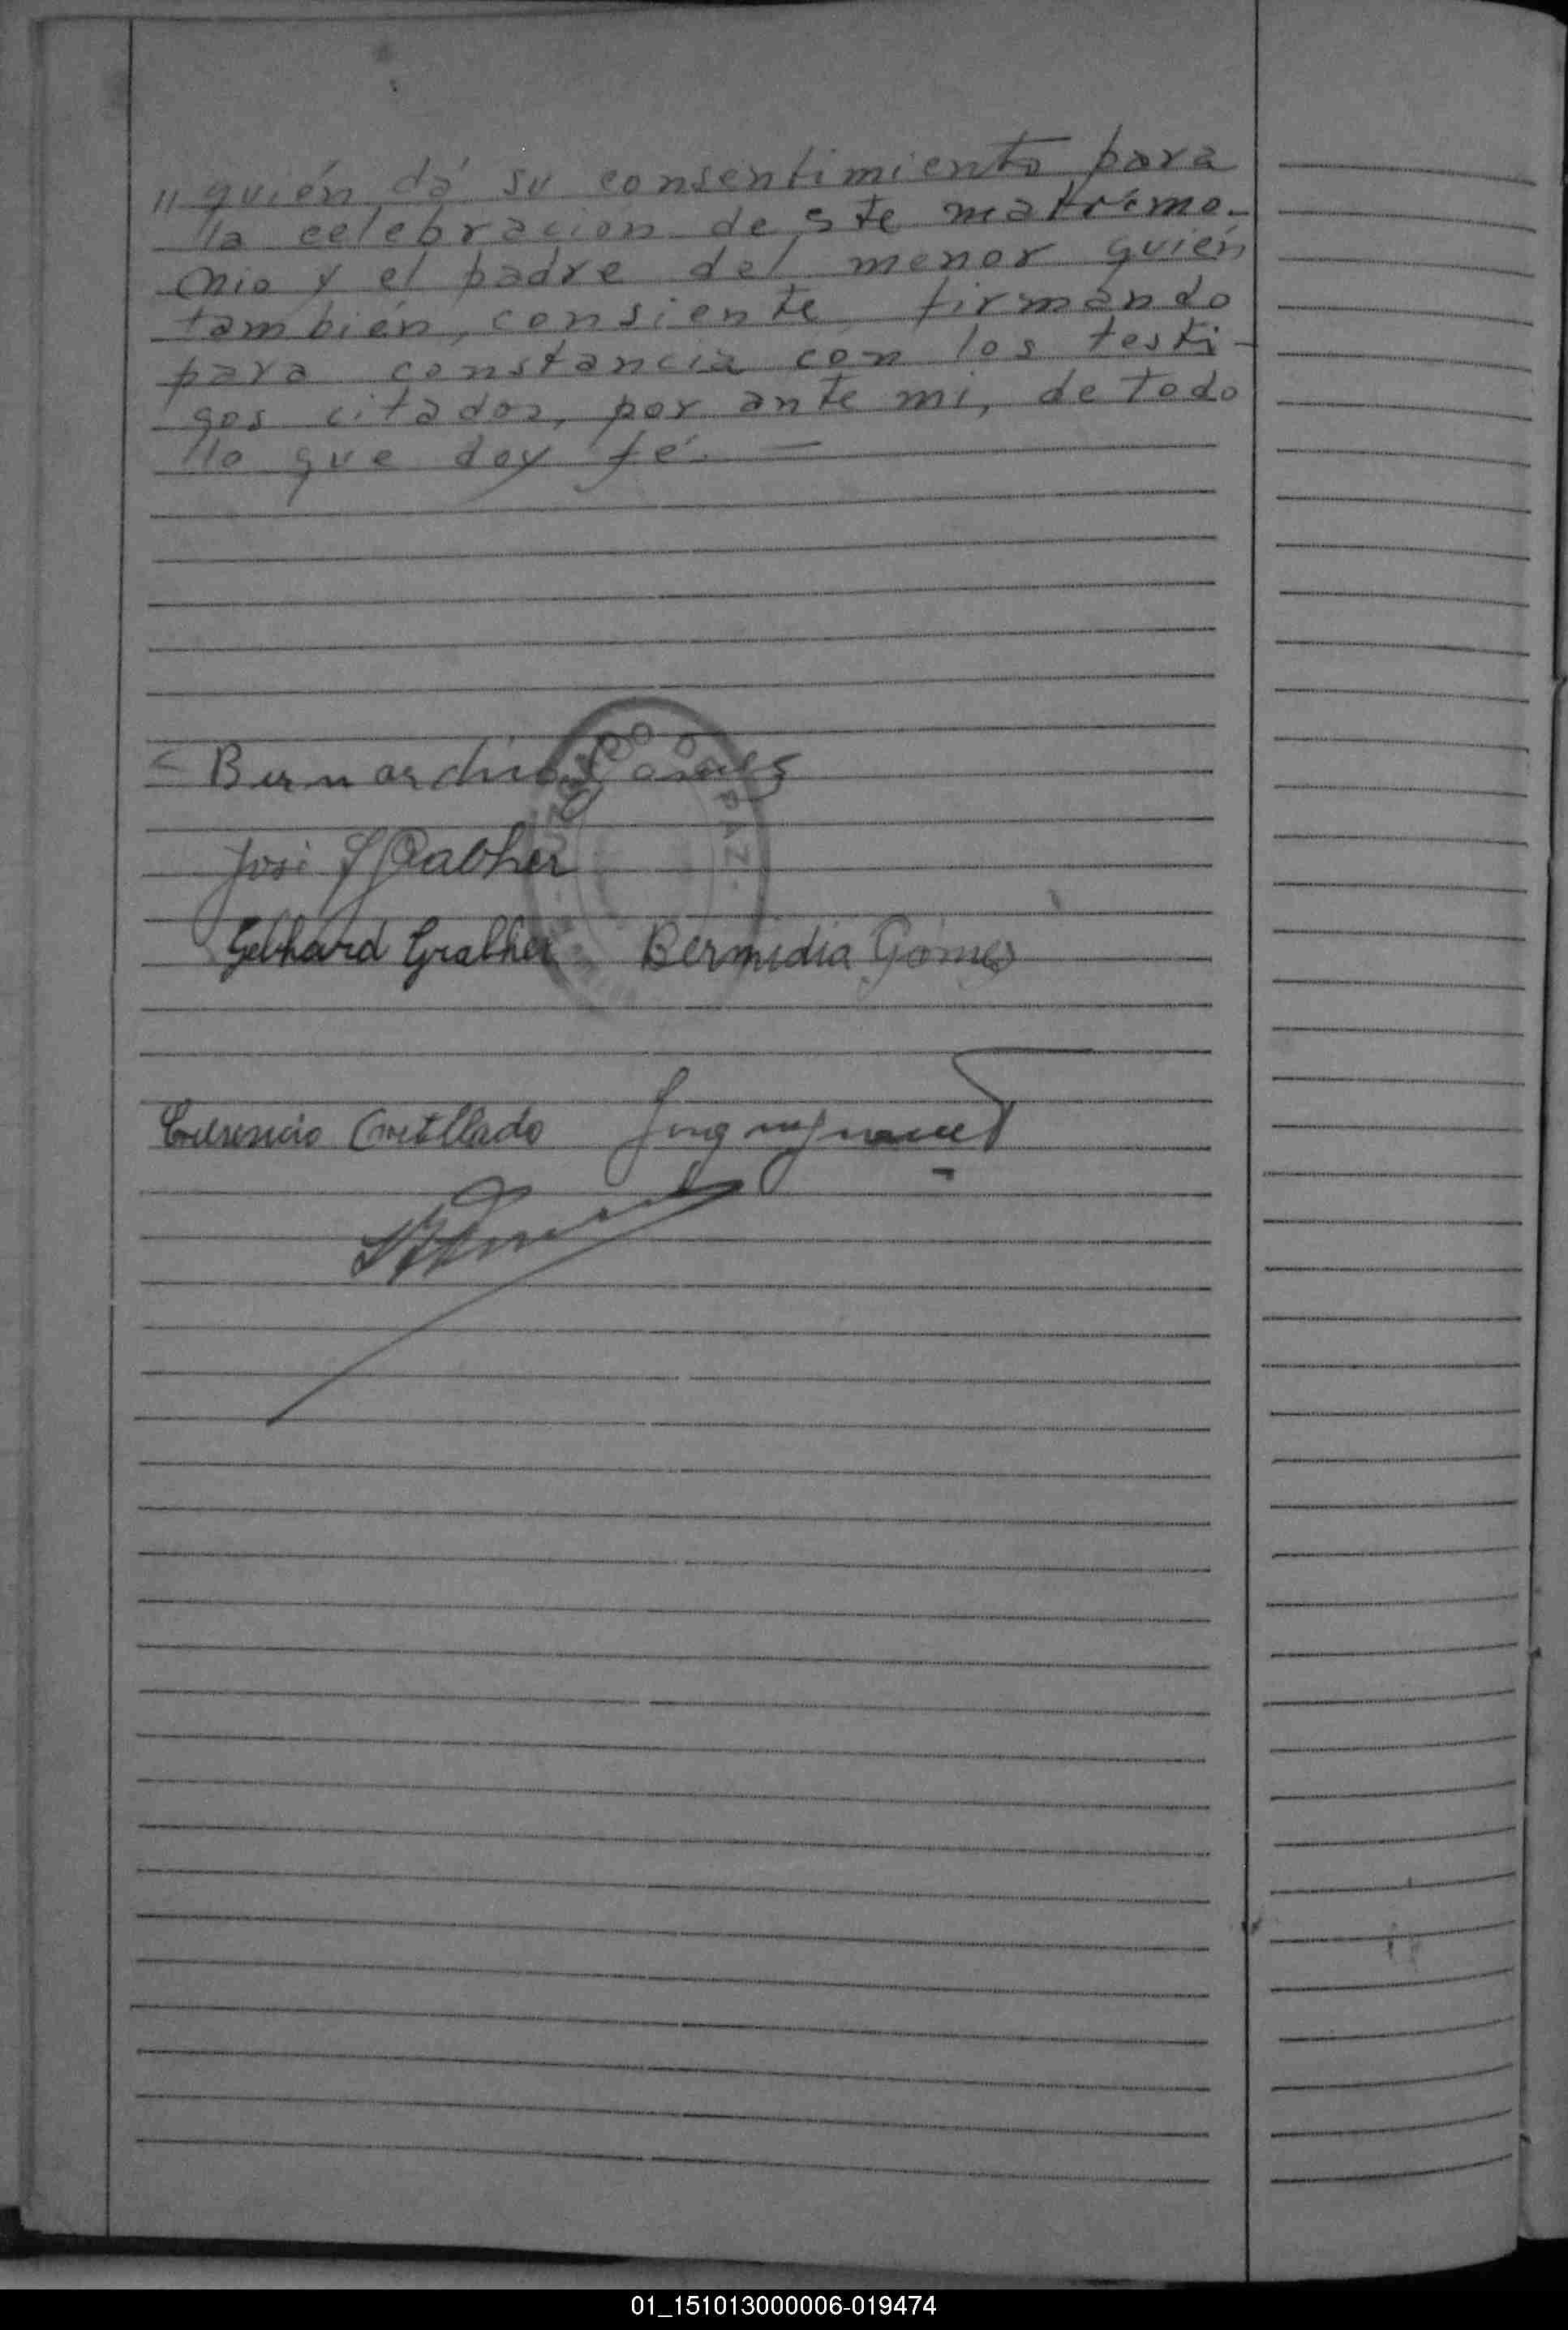 " quién dá su consentimiento para
la celebración de este matrimo-
nio y el padre del menor quién
también, consiente, firmándo
para constancia con los testi-
gos citados, por ante mi, de todo
lo que doy fé. —
Bernardino Gomes
José Grabher
Gebhard Grabher Bermidia Gómes
01_151013000006-019474